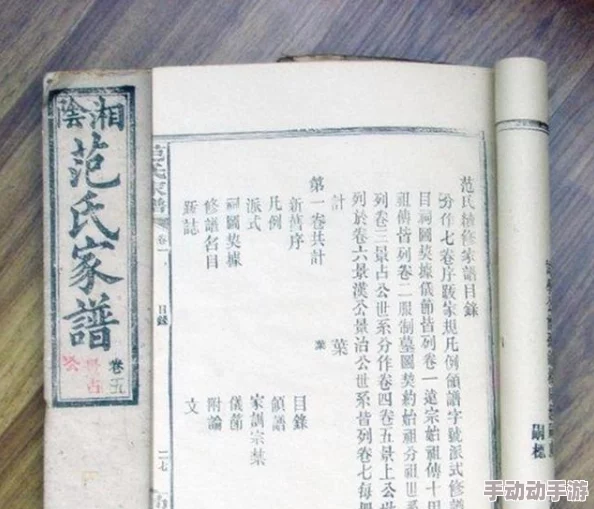 湘陰
范氏家譜
卷五
景占
公
范氏家譜
卷一
目錄
二七
范氏續修家譜目錄
分作七卷序跋家規凡例頒譜字號派式修譜
目祠圖契據儀節皆列卷一遠宗始祖傳十
祖傳皆列卷二服制墓圖契約始祖分祖世
列卷三景占公世系分作卷四卷五景上公世
列於卷六景漢公景沾公世系皆列卷七每
計 葉
第一卷共計 葉
新舊序 目錄
凡例 頒譜
派式 家訓宗禁
祠圖契據 儀節
修譜名目 附論
新誌 文
嗣標
手动动手游